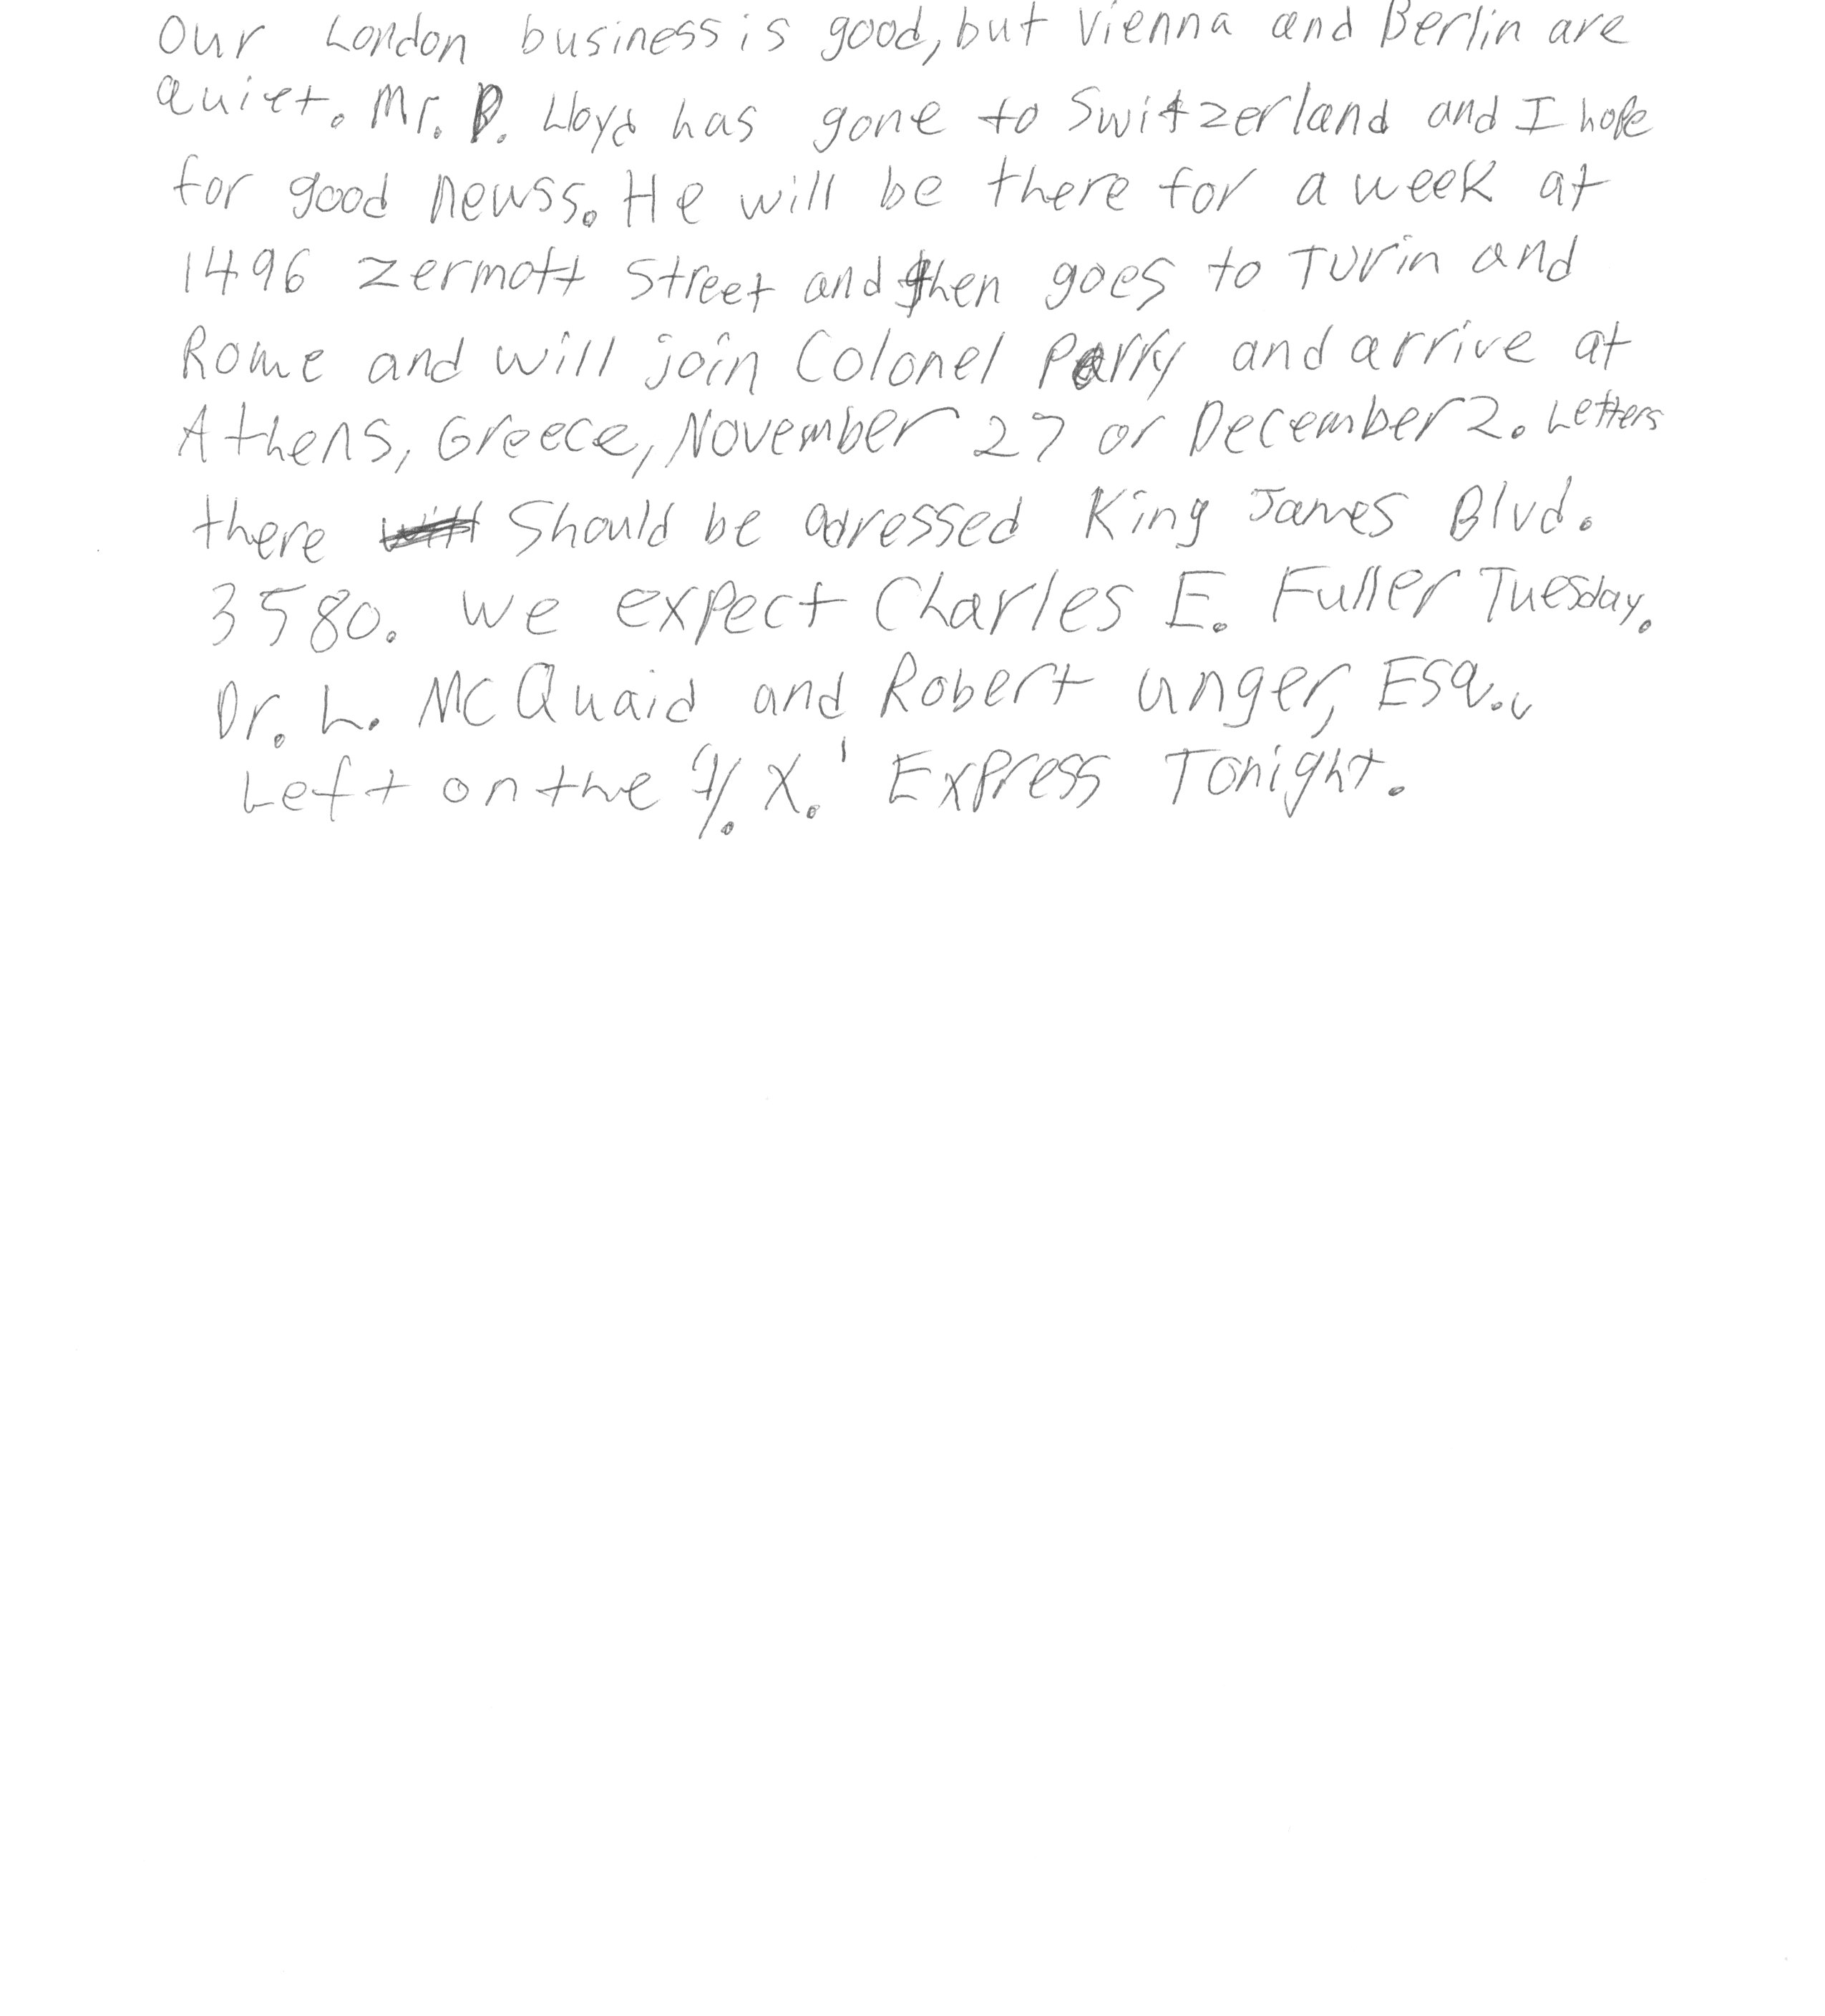 Our London business is good, but Vienna and Berlin are
Quiet. Mr. D. Lloyd has gone to Switzerland and I hope
for good newss. He will be there for a week at
1496 Zermott Street and then goes to Turin and
Rome and will join Colonel Parry and arrive at
Athens, Greece, November 27 or December 2. Letters
there should be adressed King James Blvd.
3580. We expect Charles E. Fuller Tuesday.
Dr. L. McQuaid and Robert Unger, Esq.,
Left on the 'Y. X.' Express Tonight.